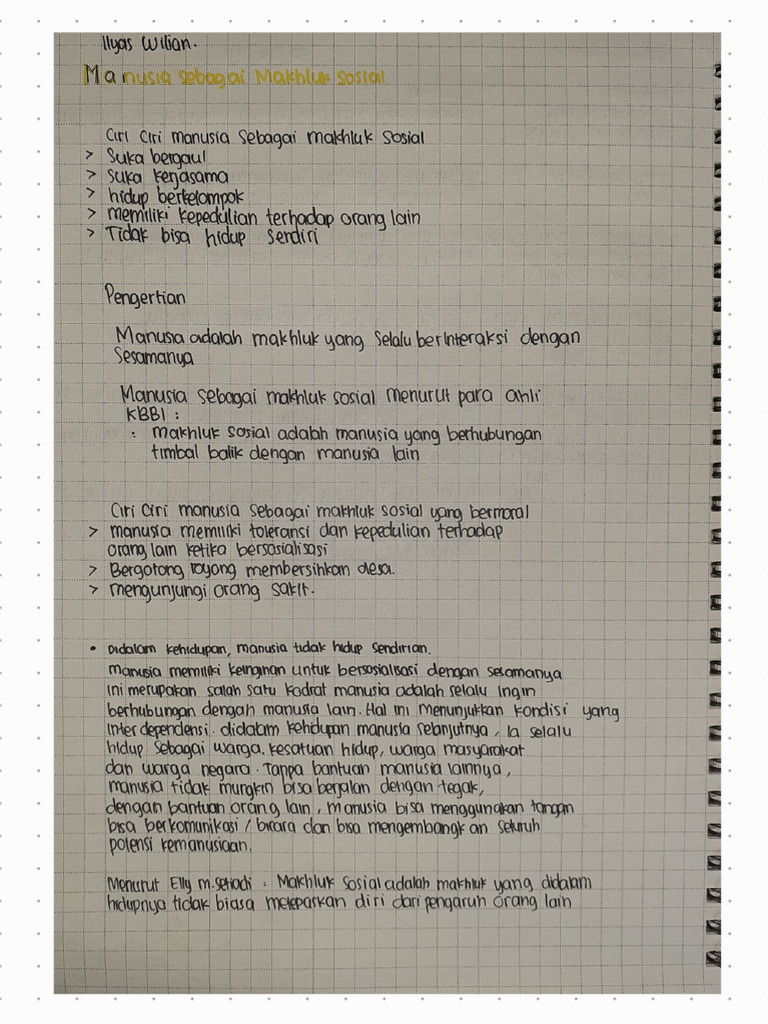 Ilyas Wilian.
Manusia sebagai Makhluk Sosial
Ciri Ciri manusia Sebagai makhluk Sosial
> Suka bergaul
> Suka kerjasama
> hidup berkelompok
> memiliki kepedulian terhadap orang lain
> Tidak bisa hidup Sendiri
Pengertian
Manusa adalah makhluk yang Selalu berinteraksi dengan
Sesamanya
Manusia Sebagai makhluk sosial menurut para ahli
KBBI :
: makhluk sosial adalah manusia yang berhubungan
timbal balik dengan manusia lain
Ciri Ciri manusia Sebagai makhluk sosial yang bermoral
> manusia memiliki toleransi dan kepedulian terhadap
orang lain ketika bersosialisasi
> Bergotong royong membersihkan desa.
> mengunjungi orang sakit.
• Didalam kehidupan, manusia tidak hidup Sendirian.
manusia memiliki keinginan untuk bersosialisasi dengan sesamanya
ini merupakan salah satu kodrat manusia adalah selalu ingin
berhubungan dengan manusia lain. Hal ini menunjukkan kondisi yang
interdependensi. didalam kehidupan manusia selanjutnya, ia selalu
hidup sebagai warga. kesatuan hidup, warga masyarakat
dan warga negara. Tanpa bantuan manusia lainnya,
manusia tidak mungkin bisa berjalan dengan tegak,
dengan bantuan orang lain, manusia bisa menggunakan tangan
bisa berkomunikasi / bicara dan bisa mengembangkan seluruh
potensi kemanusiaan.
Menurut Elly m. Setiadi : Makhluk Sosial adalah makhluk yang didalam
hidupnya tidak biasa melepaskan diri dari pengaruh orang lain